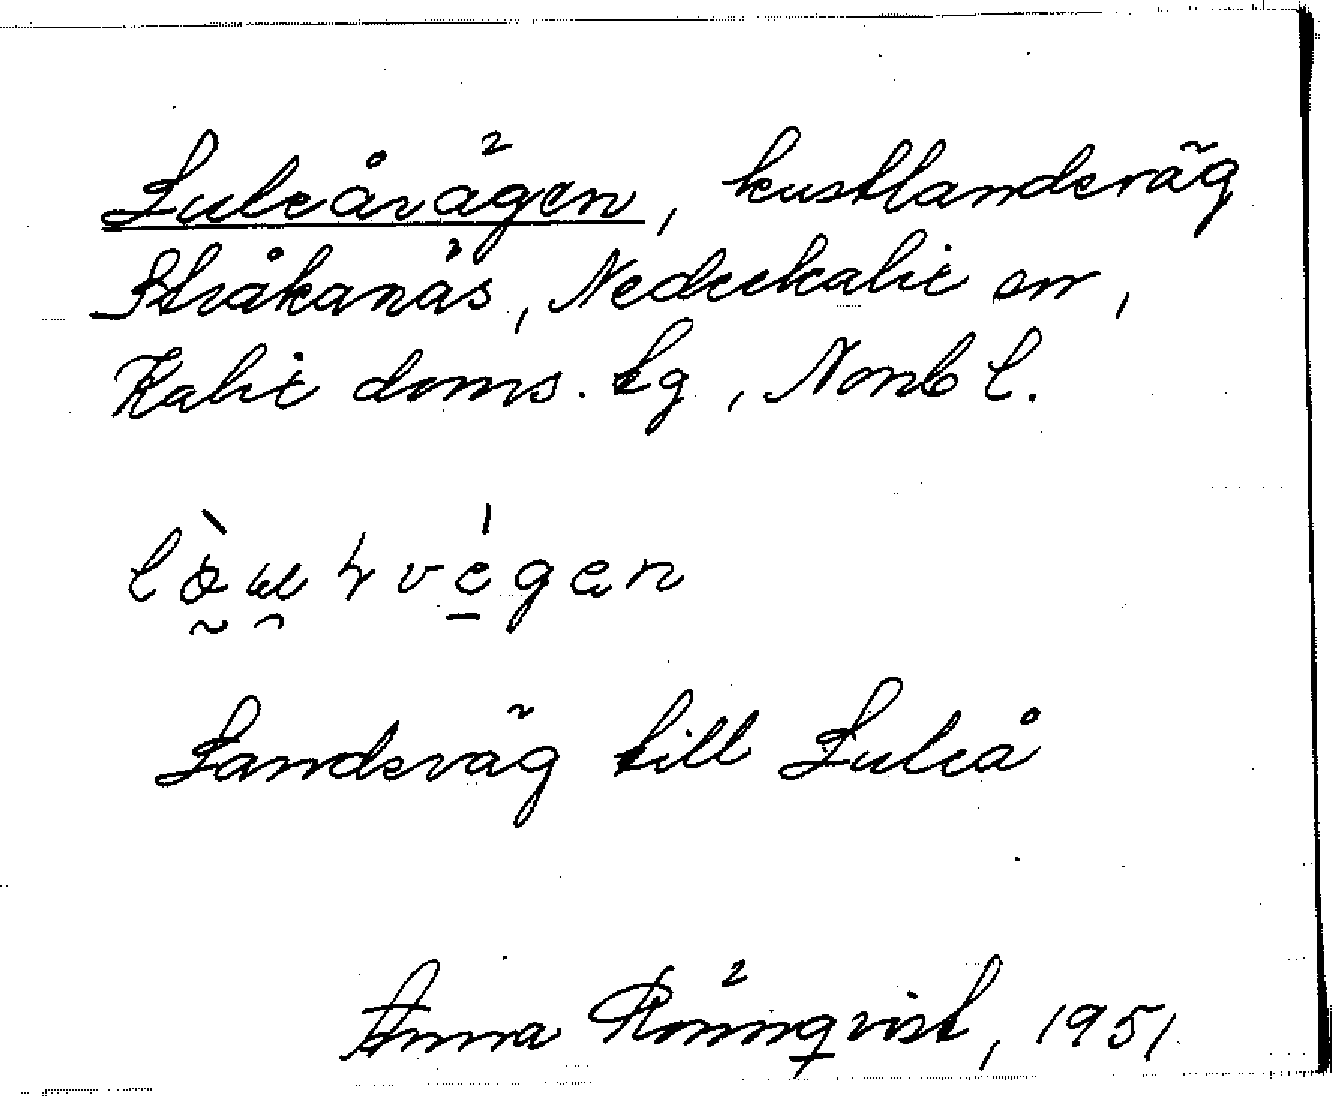 Luleåvägen, kustlandsväg
Stråkanäs, Nederkalix sn,
Kalix doms. tg, Norrb l.
Landsväg till Luleå
Anna Rönnqvist, 1951